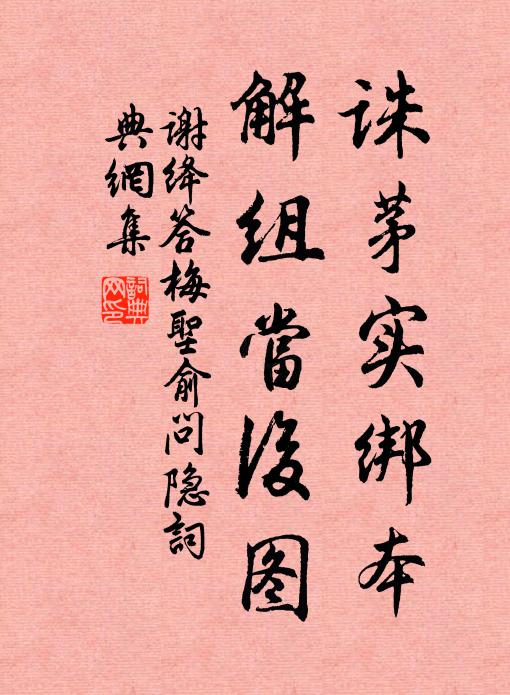 诛茅实绑本
解组當後图
谢绛答梅聖俞问隐詞
典網集
詞典网印